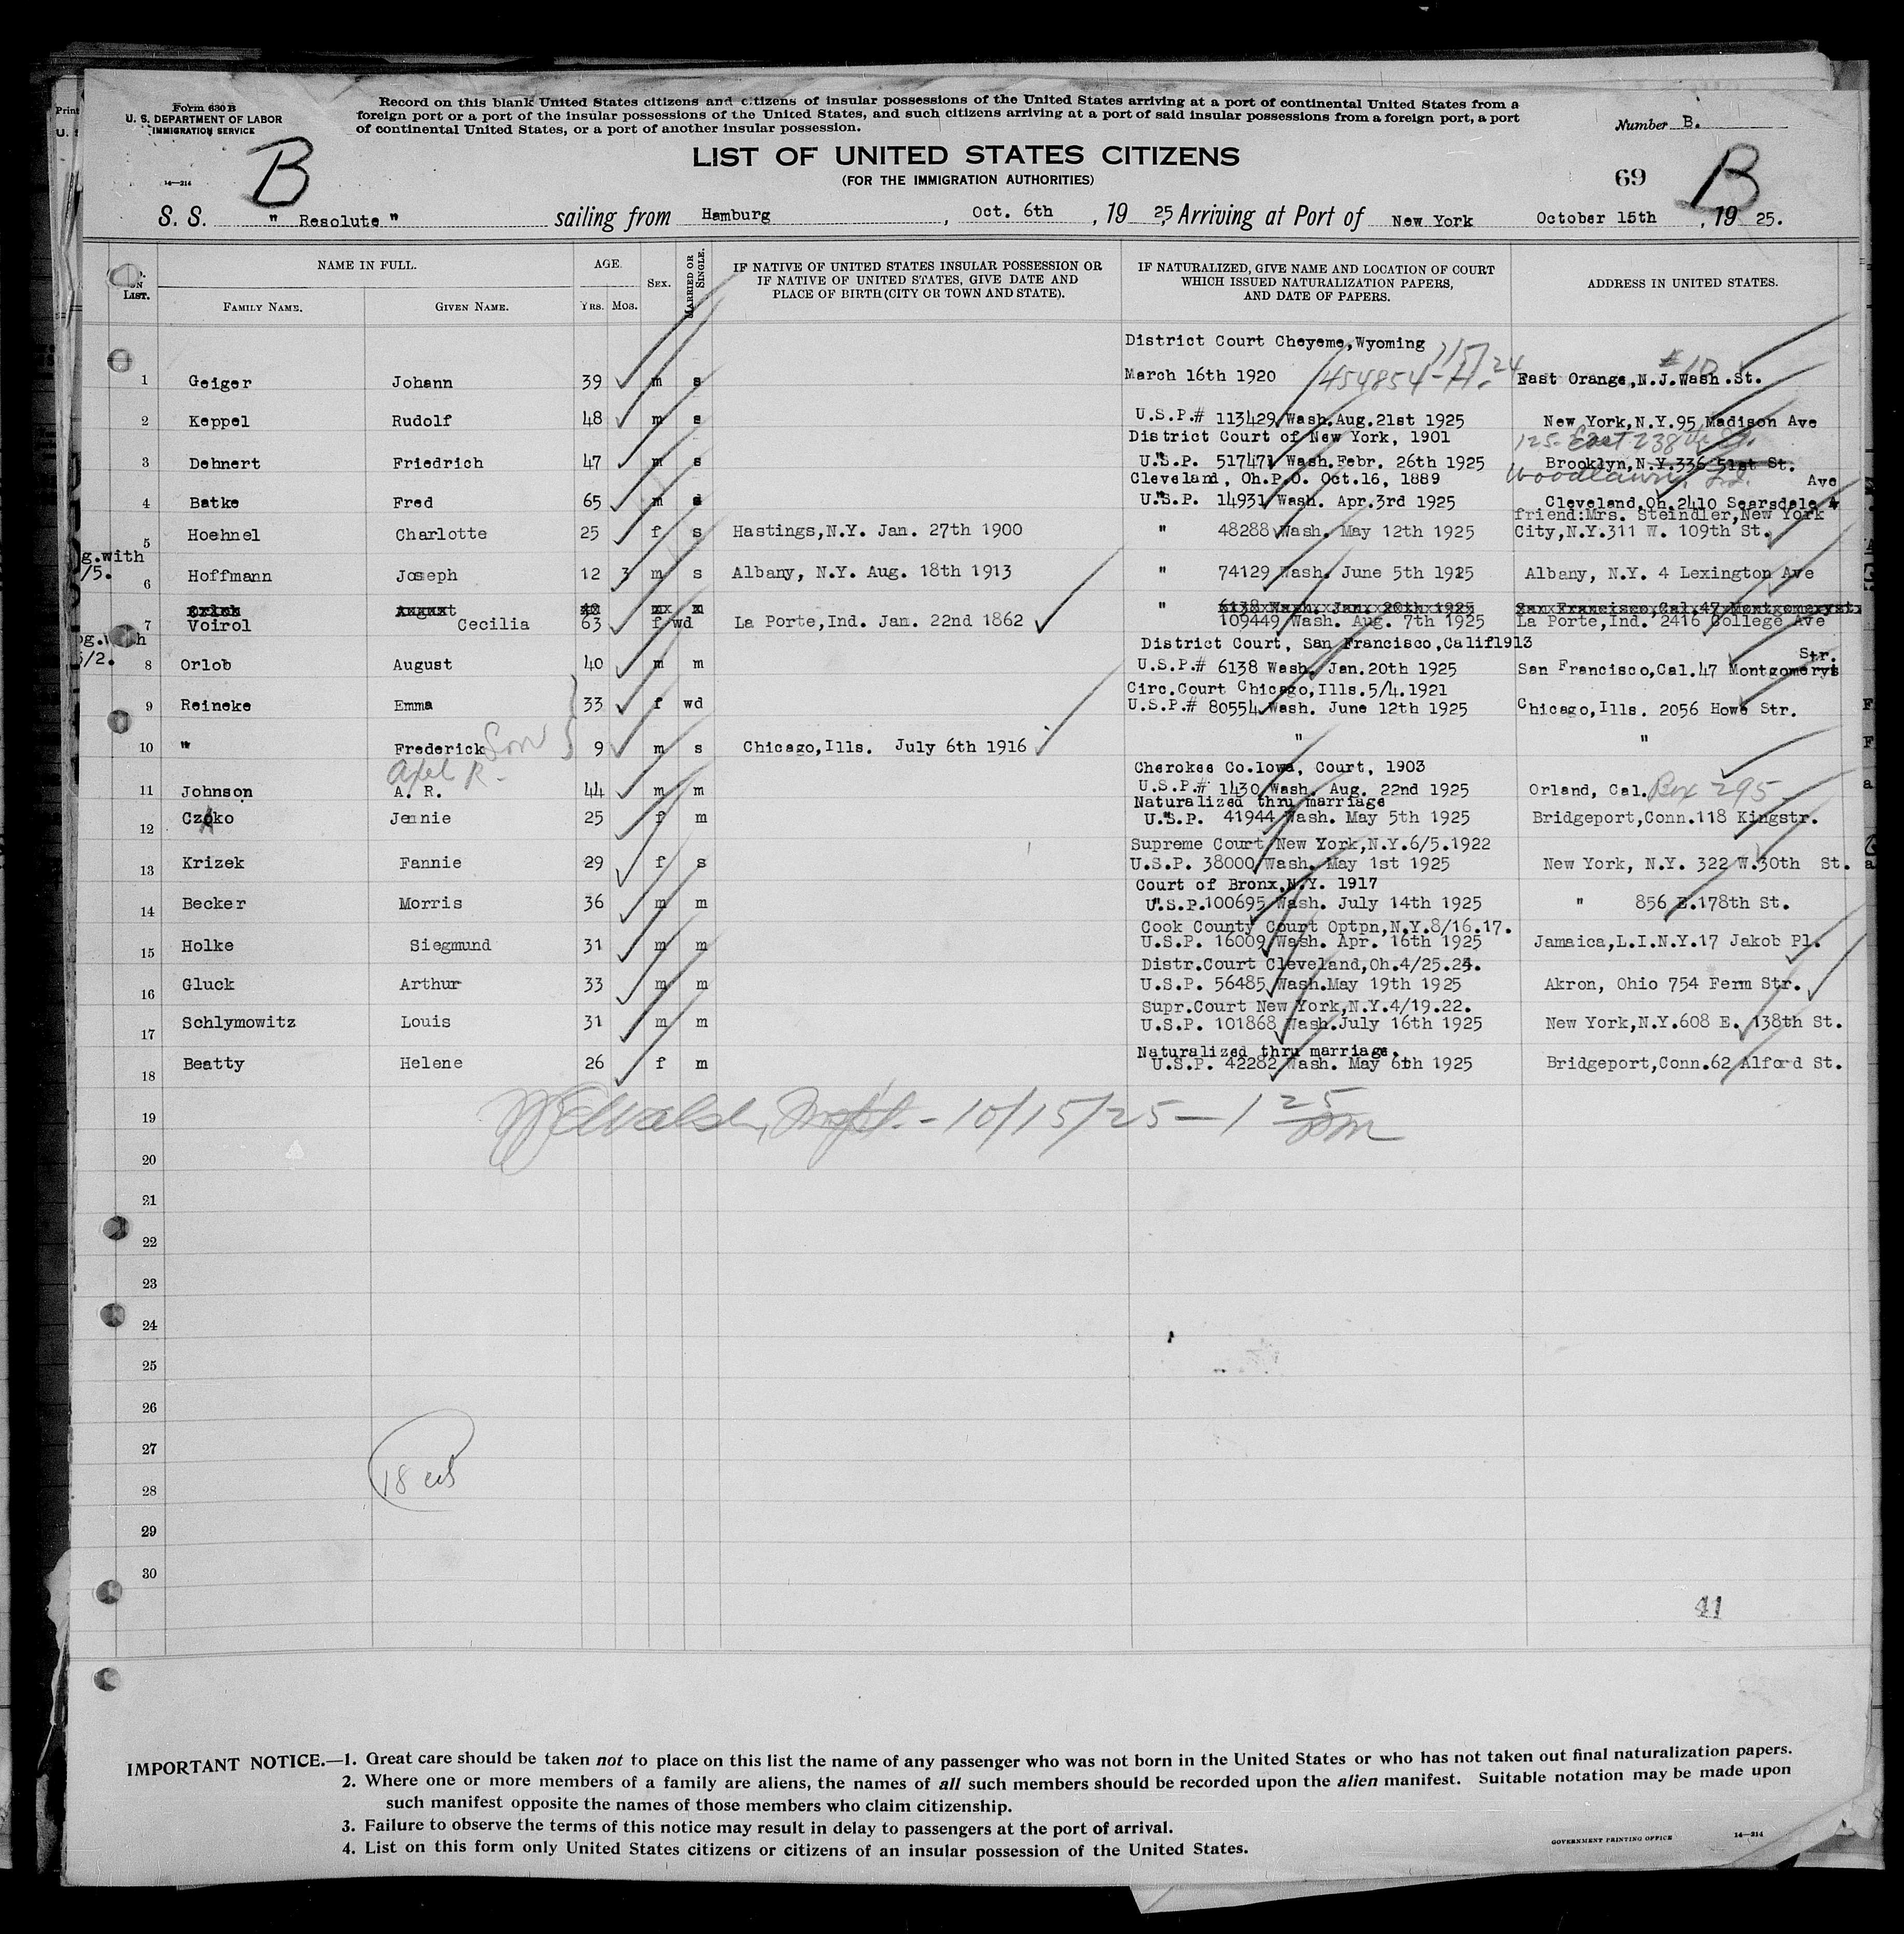 Form 630 B
U. S. DEPARTMENT OF LABOR
IMMIGRATION SERVICE
14—214
Record on this blank United States citizens and citizens of insular possessions of the United States arriving at a port of continental United States from a
foreign port or a port of the insular possessions of the United States, and such citizens arriving at a port of said insular possessions from a foreign port, a port
of continental United States, or a port of another insular possession.
Number B.
B
LIST OF UNITED STATES CITIZENS
(FOR THE IMMIGRATION AUTHORITIES)
69
B
S. S. " Resolute " sailing from Hamburg, Oct. 6th, 1925, Arriving at Port of New York October 15th, 1925.
LIST.
NAME IN FULL.
FAMILY NAME.
GIVEN NAME.
AGE.
YRS. MOS.
SEX.
MARRIED OR SINGLE.
IF NATIVE OF UNITED STATES INSULAR POSSESSION OR
IF NATIVE OF UNITED STATES, GIVE DATE AND
PLACE OF BIRTH (CITY OR TOWN AND STATE).
IF NATURALIZED, GIVE NAME AND LOCATION OF COURT
WHICH ISSUED NATURALIZATION PAPERS,
AND DATE OF PAPERS.
ADDRESS IN UNITED STATES.
District Court Cheyeme,Wyoming
1 Geiger Johann 39 m s March 16th 1920 454854 East Orange,N.J.Wash.St. #10
2 Keppel Rudolf 48 m s U.S.P.# 113429 Wash.Aug.21st 1925 New York,N.Y.95 Madison Ave
District Court of New York, 1901 125 East 238th St.
3 Dehnert Friedrich 47 m s U.S.P. 517471 Wash.Febr. 26th 1925 Brooklyn,N.Y.336 51st St.
Cleveland, Oh.P.O. Oct.16, 1889 Woodlawn Ave
4 Batke Fred 65 m s U.S.P. 14931 Wash. Apr.3rd 1925 Cleveland,Oh.2410 Searsdale
friend:Mrs. Steindler,New York
5 Hoehnel Charlotte 25 f s Hastings,N.Y. Jan. 27th 1900 " 48288 Wash. May 12th 1925 City,N.Y.311 W. 109th St.
g.with
/5.
6 Hoffmann Joseph 12 3 m s Albany, N.Y. Aug. 18th 1913 " 74129 Wash. June 5th 1925 Albany, N.Y. 4 Lexington Ave
Orlob August 40 m m " 6138 Wash. Jan. 20th 1925 San Francisco,Cal.47 Montgomeryst.
7 Voirol Cecilia 63 f wd La Porte,Ind. Jan. 22nd 1862 109449 Wash. Aug. 7th 1925 La Porte,Ind. 2416 College Ave
District Court, San Francisco,Calif1913 Str.
/2.
8 Orlob August 40 m m U.S.P.# 6138 Wash. Jan.20th 1925 San Francisco,Cal.47 Montgomerys
Circ.Court Chicago,Ills.5/4.1921
9 Reineke Emma 33 f wd U.S.P.# 80554 Wash. June 12th 1925 Chicago,Ills. 2056 Howe Str.
10 " Frederick Son 9 m s Chicago,Ills. July 6th 1916 " "
Axel R. Cherokee Co.Iowa, Court, 1903
11 Johnson A. R. 44 m m U.S.P.# 1430 Wash. Aug. 22nd 1925 Orland, Cal. Box 295
Naturalized thru marriage
12 Czoko Jennie 25 f m U.S.P. 41944 Wash. May 5th 1925 Bridgeport,Conn.118 Kingstr.
Supreme Court New York,N.Y.6/5.1922
13 Krizek Fannie 29 f s U.S.P. 38000 Wash. May 1st 1925 New York, N.Y. 322 W.30th St.
Court of Bronx,N.Y. 1917
14 Becker Morris 36 m m U.S.P.100695 Wash. July 14th 1925 " 856 E.178th St.
Cook County Court Optpn,N.Y.8/16.17.
15 Holke Siegmund 31 m m U.S.P. 16009 Wash. Apr. 16th 1925 Jamaica,L.I.N.Y.17 Jakob Pl.
Distr.Court Cleveland,Oh.4/25.24.
16 Gluck Arthur 33 m m U.S.P. 56485 Wash.May 19th 1925 Akron, Ohio 754 Ferm Str.
Supr.Court New York,N.Y.4/19.22.
17 Schlymowitz Louis 31 m m U.S.P. 101868 Wash.July 16th 1925 New York,N.Y.608 E. 138th St.
Naturalized thru marriage.
18 Beatty Helene 26 f m U.S.P. 42282 Wash. May 6th 1925 Bridgeport,Conn.62 Alford St.
19 10/15/25 — 1 25 pm
20
21
22
23
24
25
26
27
18
28
29
30
41
IMPORTANT NOTICE.—1. Great care should be taken not to place on this list the name of any passenger who was not born in the United States or who has not taken out final naturalization papers.
2. Where one or more members of a family are aliens, the names of all such members should be recorded upon the alien manifest. Suitable notation may be made upon
such manifest opposite the names of those members who claim citizenship.
3. Failure to observe the terms of this notice may result in delay to passengers at the port of arrival.
4. List on this form only United States citizens or citizens of an insular possession of the United States.
GOVERNMENT PRINTING OFFICE 14—214